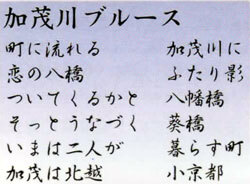 加茂川ブルース
町に流れる
恋の八橋
ついてくるかと
そっとうなづく
いまは二人が
加茂は北越
加茂川に
ふたり影
八幡橋
葵橋
暮らす町
小京都